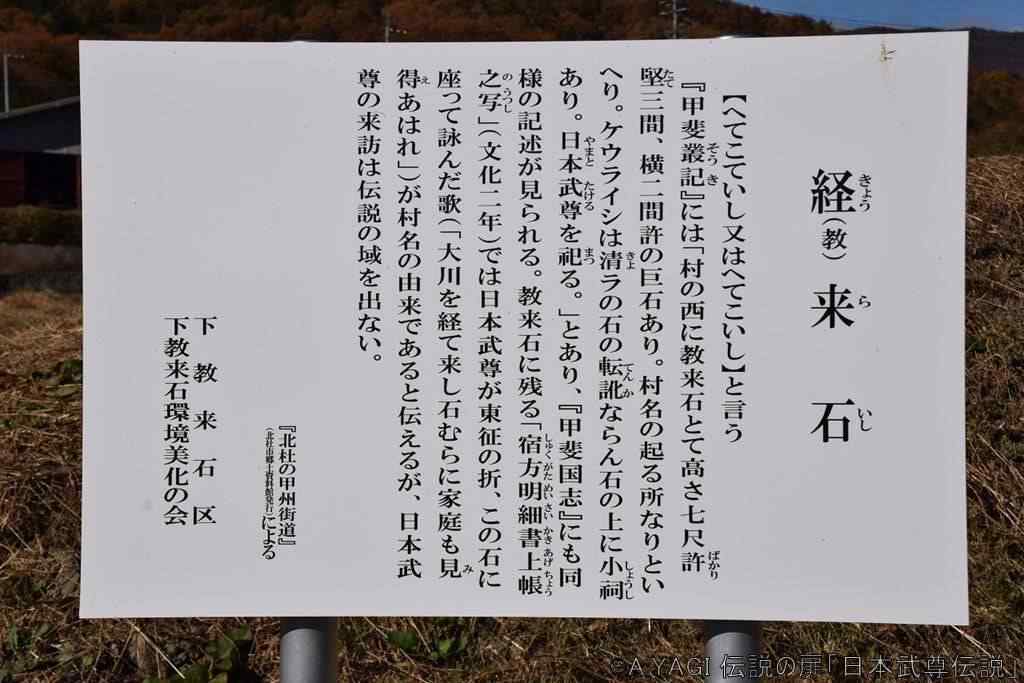 経(教)来石
きょう らいし
【へてこていし又はへてこいし】と言う
『甲斐叢記』には「村の西に教来石とて高さ七尺許
そうき ばかり
堅三間、横二間許の巨石あり。村名の起る所なりとい
たて
へり。ケウライシは清ラの石の転訛ならん石の上に小祠
きよ てんか しょうし
あり。日本武尊を祀る。」とあり、『甲斐国志』にも同
やまと たける まつ
様の記述が見られる。教来石に残る「宿方明細書上帳
しゅくがためいさいかきあげちょう
之写」(文化二年)では日本武尊が東征の折、この石に
のうつし
座って詠んだ歌(「大川を経て来し石むらに家庭も見
み
得あはれ」)が村名の由来であると伝えるが、日本武
え
尊の来訪は伝説の域を出ない。
『北杜の甲州街道』
(北杜市郷土資料館発行)による
下教来石区
下教来石環境美化の会
©A.YAGI 伝説の扉「日本武尊伝説」